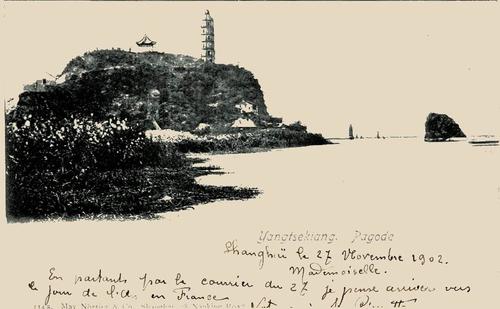 Yangtsekiang. Pagode
Shanghaï le 27 Novembre 1902.
Mademoiselle.
En partants par le courrier du 27 je pense arriver vers
le jour de l'An en France
Max Nössler & Co., Shanghai